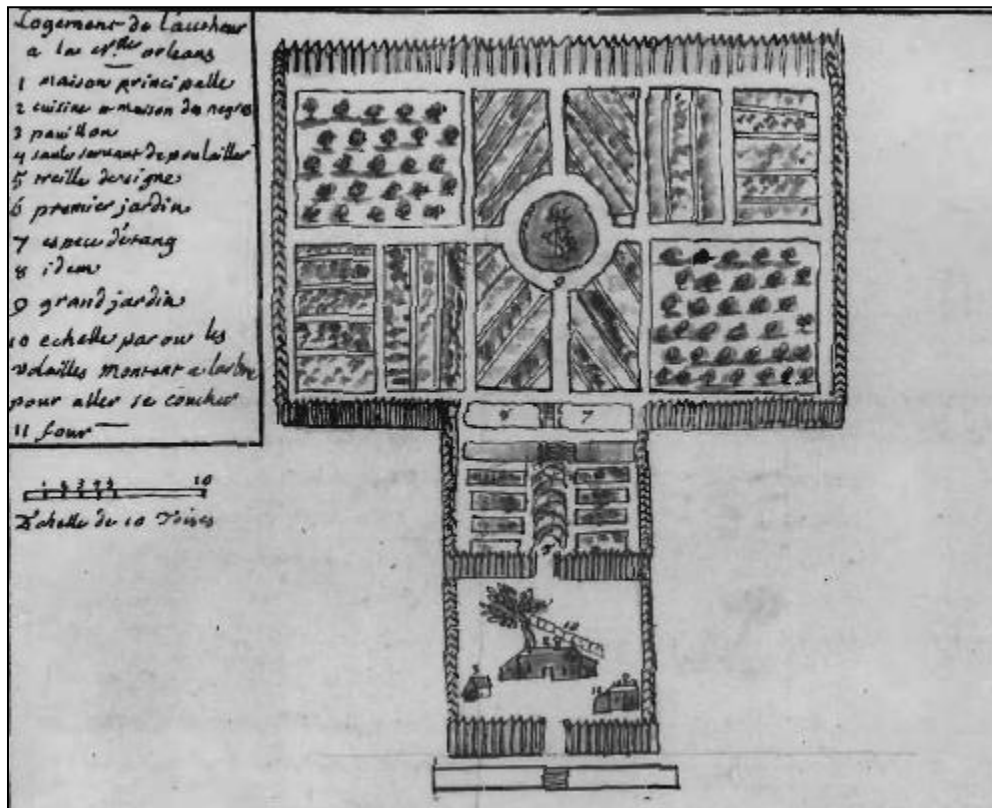 Logement de l'autheur
a la nvelle orleans
1 maison principalle
2 cuisine maison de negre
3 pavillon
4 servant de poulailler
5 treille de vigne
6 premier jardin
7 espece d'etang
8 idem
9 grand jardin
10 echelle par ou les
volailles montent a larbre
pour aller se coucher
11 four
1 2 3 4 5 10
Echelle de 10 Toises
9
6 7
5
10
3
11 2